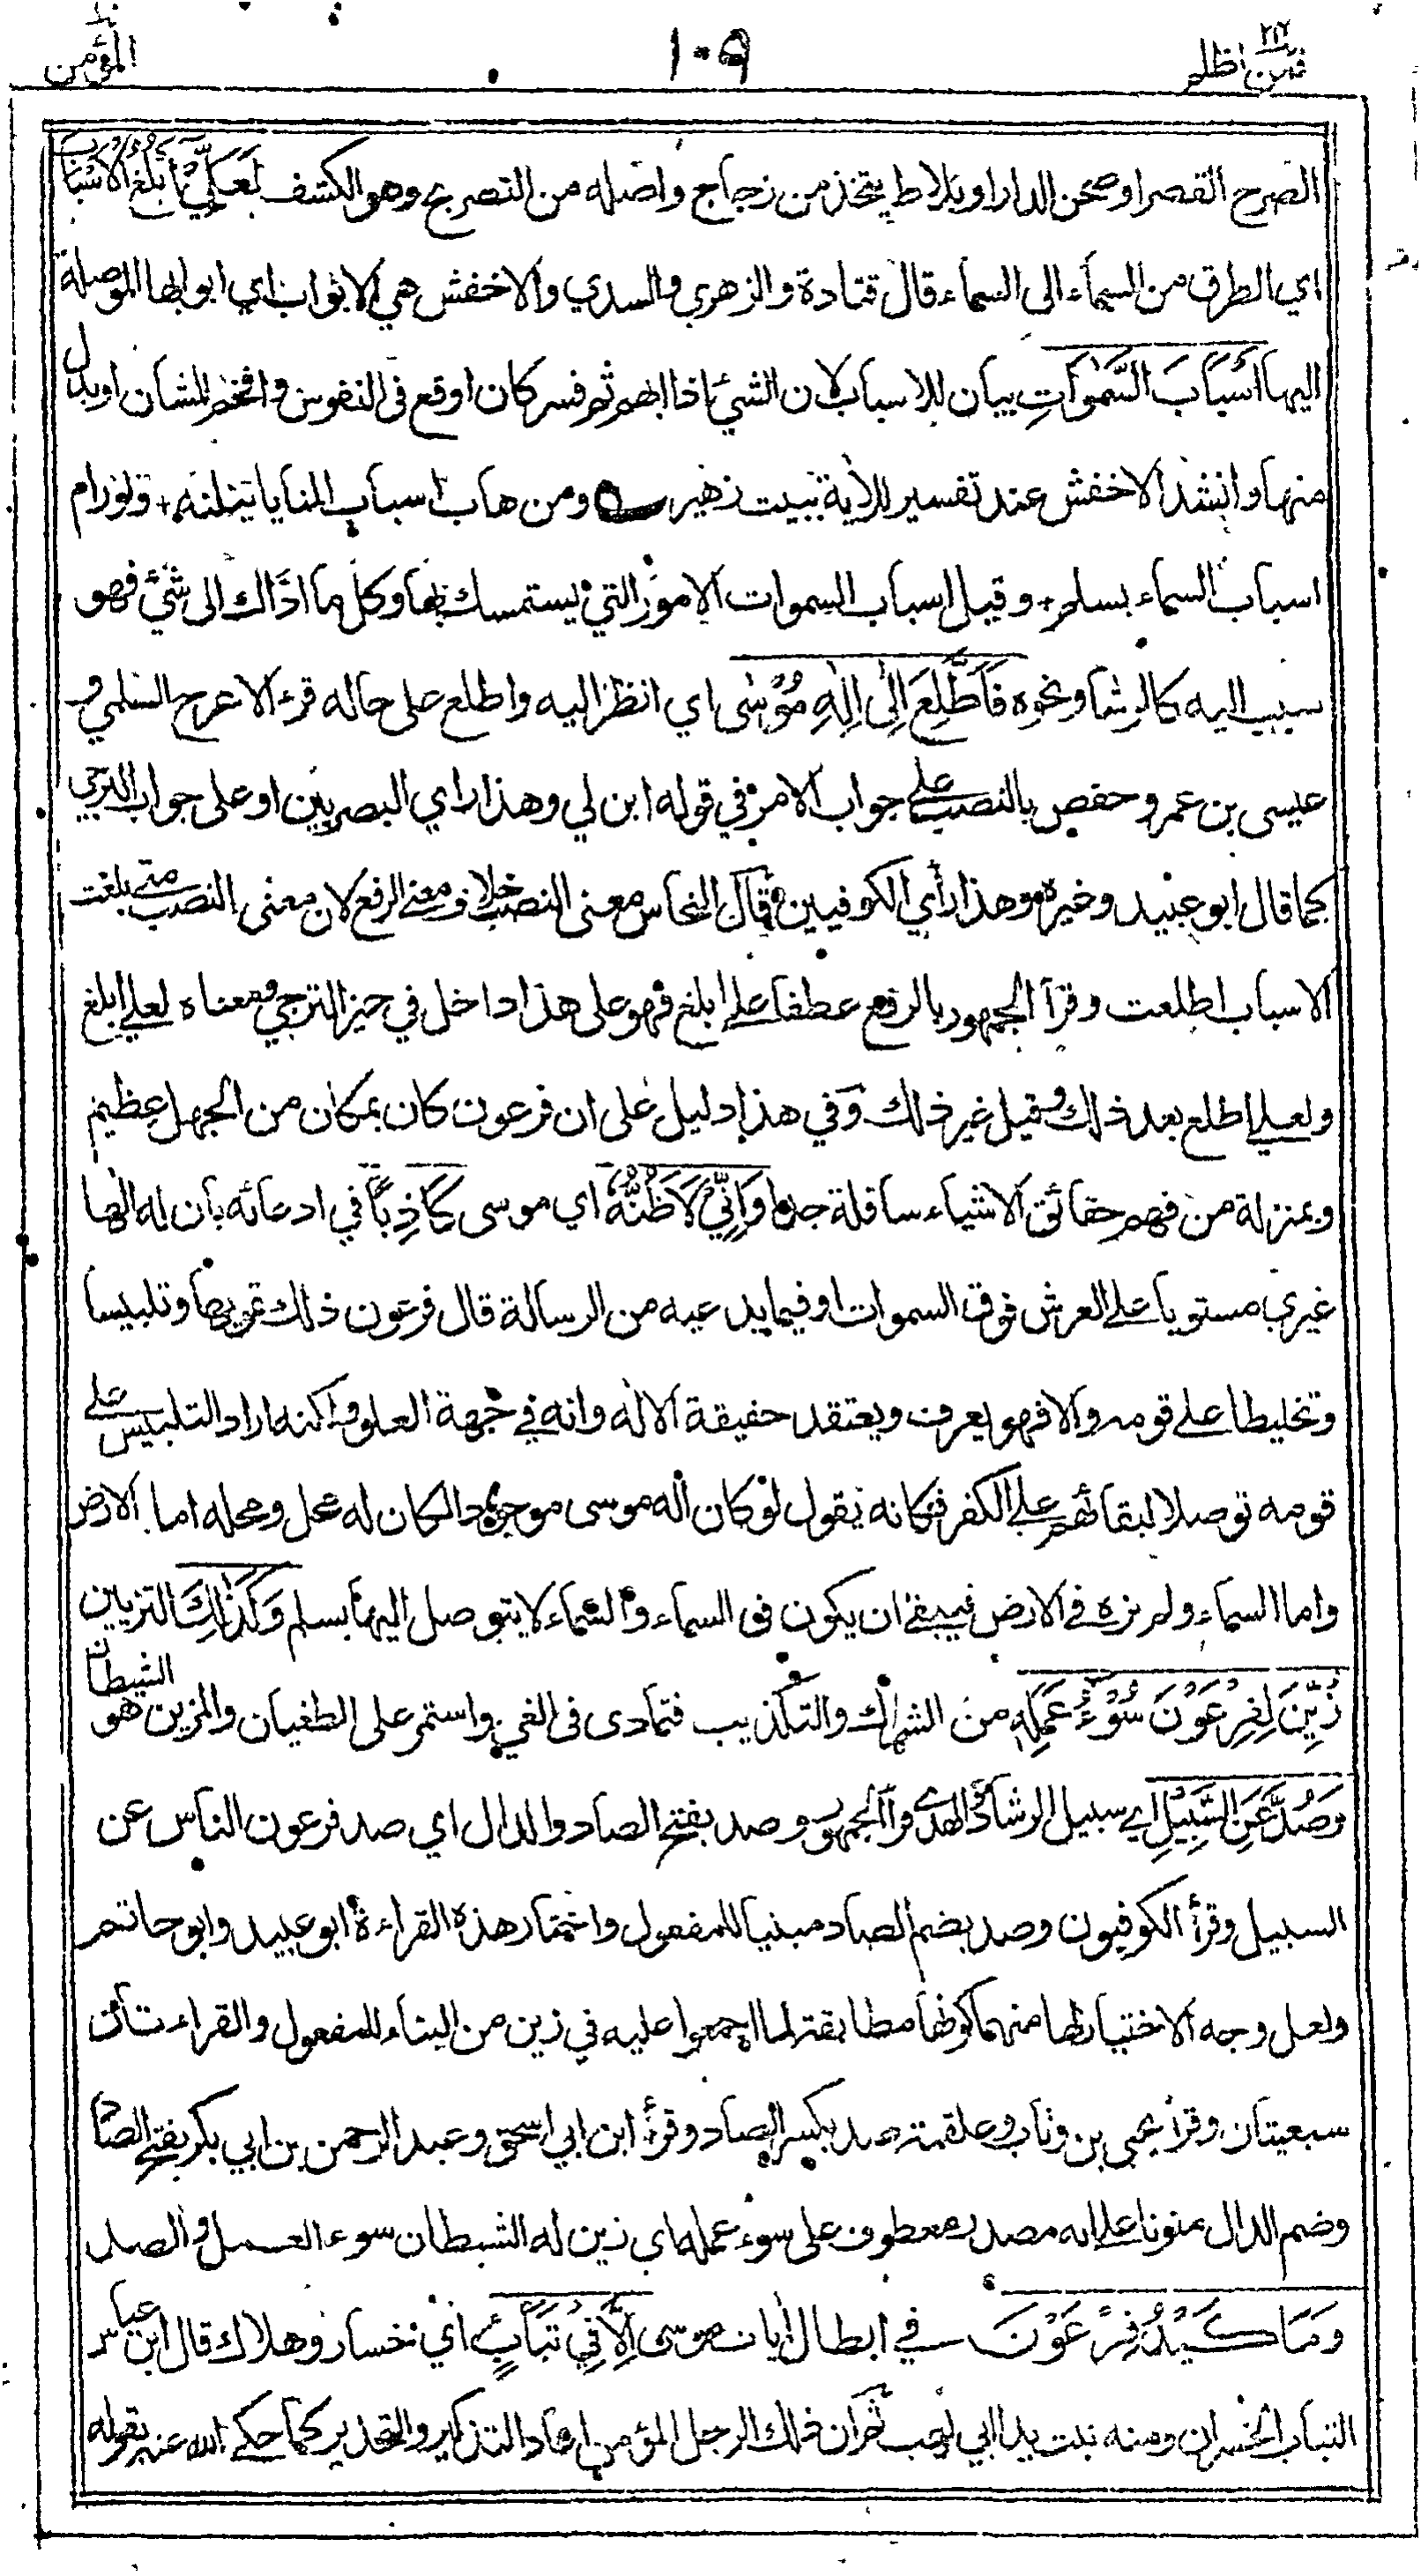 فمن اظلم ٢٤ ١٠٩ المؤمن
الصرح القصر او صحن الدار او بلاط يتخذ من زجاج واصله من التصريح وهو الكشف لَعَلِّيْ أَبْلُغُ الْأَسْبَابَ
اي الطرق من السماء الى السماء قال قتادة والزهري والسدي والاخفش هي الابواب اي ابوابها الموصلة
اليها أَسْبَابَ السَّمٰوَاتِ بيان للاسباب لان الشيء اذا ابهم ثم فسر كان اوقع فى النفوس وافخم للشان او بدل
منها وانشد الاخفش عند تفسير للاية بيت زهير ومن هاب اسباب المنايا ينلنه + ولو رام
اسباب السماء بسلم + وقيل اسباب السموات الامور التي يستمسك بها وكل ما اداك الى شيء فهو
سبب اليه كالرشا ونحوه فَأَطَّلِعَ إِلَى إِلٰهِ مُوْسٰى اي انظر اليه واطلع على حاله قرء الاعرج والسلمي و
عيسى بن عمر وحفص بالنصب على جواب الامر في قوله ابن لي وهذا راي البصريين او على جواب الترجي
كما قال ابو عبيد وغيره وهذا رأي الكوفيين وقال النحاس معنى النصب خلاف معنى الرفع لان معنى النصب متى بلغت
الاسباب اطلعت وقرأ الجمهور بالرفع عطفا على ابلغ فهو على هذا داخل في حيز الترجي ومعناه لعلي ابلغ
ولعلي اطلع بعد ذلك وقيل غير ذلك وفي هذا دليل على ان فرعون كان بمكان من الجهل عظيم
وبمنزلة من فهم حقائق الاشياء سافلة جدا وَإِنِّيْ لَأَظُنُّهُ اي موسى كَاذِبًا في ادعائه بان له الها
غيري مستويا على العرش فوق السموات او فيما يدعيه من الرسالة قال فرعون ذلك تمويها وتلبيسا
وتخليطا على قومه والا فهو يعرف ويعتقد حقيقة الاله وانه في جهة العلو ولكنه اراد التلبيس على
قومه توصلا لبقائهم على الكفر فكانه يقول لو كان اله موسى موجودا لكان له محل ومحله اما الارض
واما السماء ولم نره في الارض فيبقى ان يكون في السماء والسماء لا يتوصل اليها بسلم وَكَذٰلِكَ التزيين
زُيِّنَ لِفِرْعَوْنَ سُوْءُ عَمَلِهِ من الشرك والتكذيب فتمادى فى الغي واستمر على الطغيان والمزين هو الشيطان
وَصُدَّ عَنِ السَّبِيْلِ اي سبيل الرشاد والهدى قرأ الجمهور وصد بفتح الصاد والدال اي صد فرعون الناس عن
السبيل وقرأ الكوفيون وصد بضم الصاد مبنيا للمفعول واختار هذه القراءة ابو عبيد وابو حاتم
ولعل وجه الاختيار لها منهما كونها مطابقة لما اجمعوا عليه في زين من البناء للمفعول والقراءتان
سبعيتان وقرأ يحيى بن وثاب وعلقمة صد بكسر الصاد وقرأ ابن ابي اسحق وعبد الرحمن بن ابي بكر بفتح الصاد
وضم الدال منونا على انه مصدر معطوف على سوء عمله اي زين له الشيطان سوء العمل والصد
وَمَا كَيْدُ فِرْعَوْنَ في ابطال ايات موسى إِلَّا فِيْ تَبَابٍ اي خسار وهلاك قال ابن عباس
التباب الخسران ومنه تبت يدا ابي لهب ثم ان ذلك الرجل المؤمن اعاد التذكير والتحذير كما حكى الله عنه بقوله